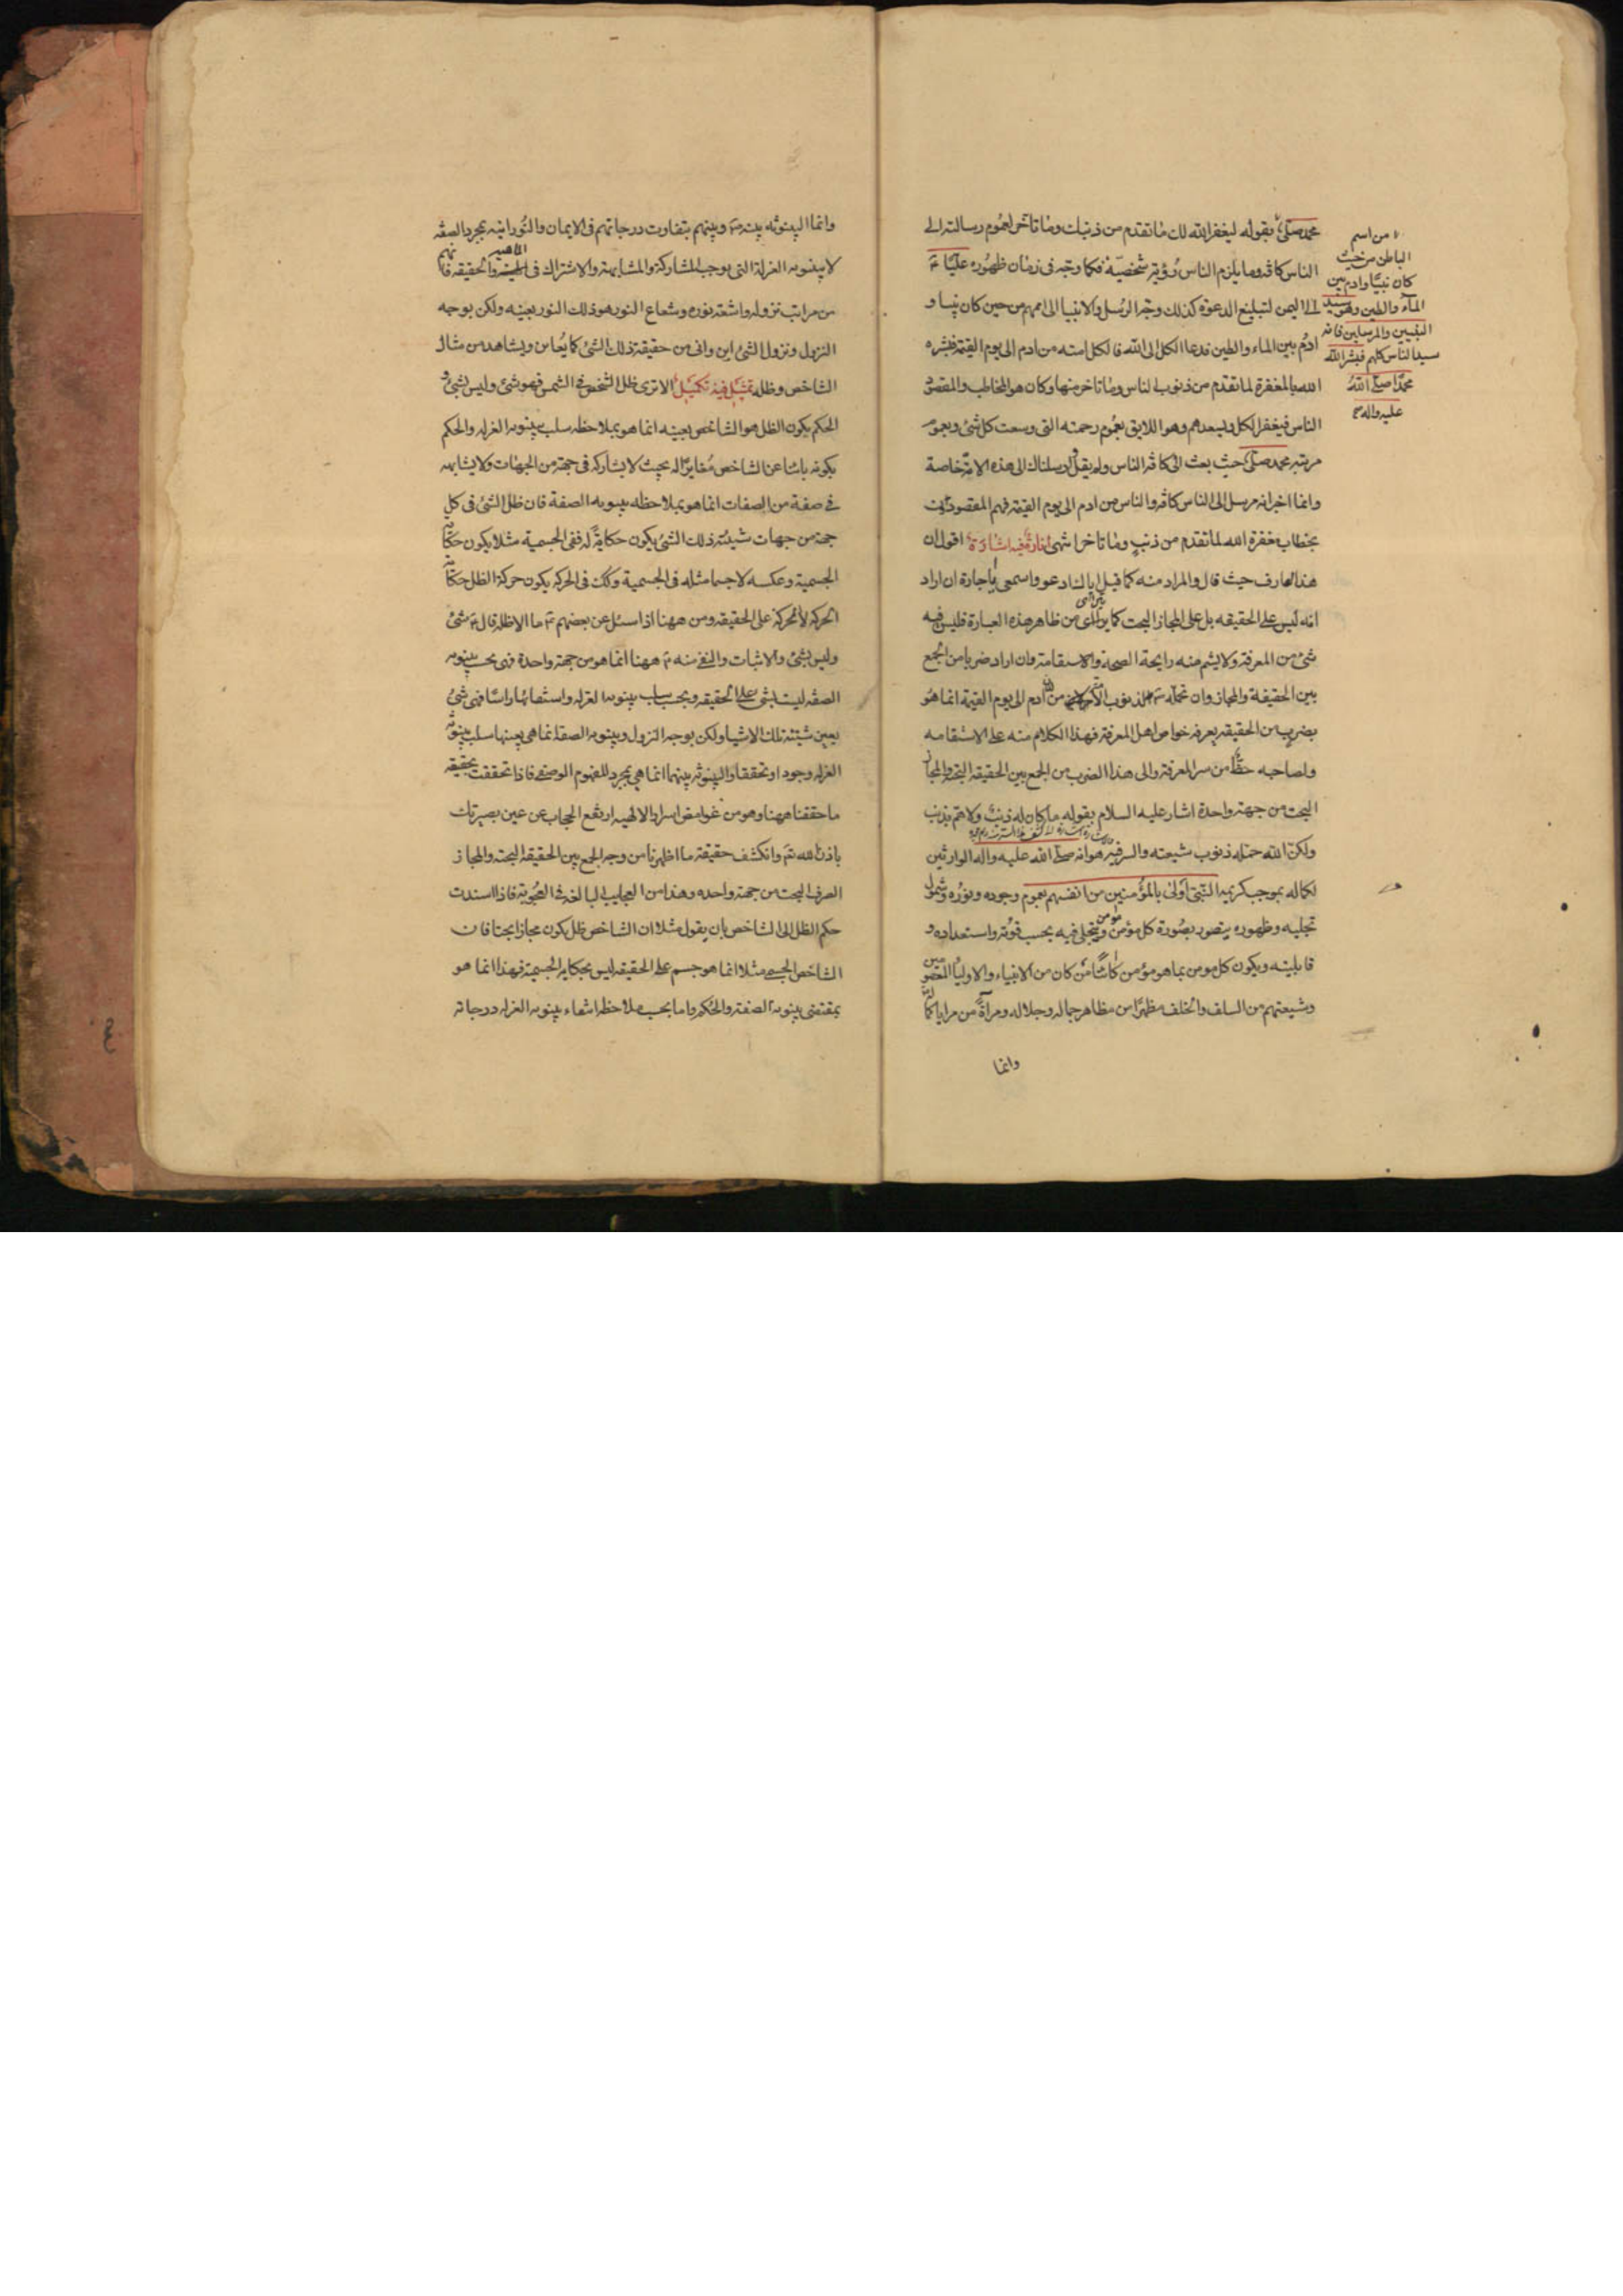 محمد صلى بقوله ليغفر الله لك ما تقدم من ذنبك وما تاخر لعموم رسالته الى
الناس كافة وما يلزم الناس رؤية شخصيّة فكما وجّه في زمان ظهوره عليّا
الى اليمن لتبليغ الدعوة كذلك وجه الرسل والانبيا الى اممهم من حين كان نبيا و
ادم بين الماء والطين فدعا الكل الى الله فالكل امته من ادم الى يوم القيمة فبشره
الله بالمغفرة لما تقدم من ذنوب الناس وما تاخر منها وكان هو المخاطب والمقصود
الناس فيغفر الكل ويسعدهم وهو اللايق بعموم رحمته التي وسعت كل شئ وبعموم
مرتبة محمد صلى حيث بعث الى كافة الناس ولم يقل ارسلناك الى هذه الامة خاصة
وانما اخبر انه مرسل الى الناس كافة والناس من ادم الى يوم القيمة فهم المقصودون
بخطاب مغفرة الله لما تقدم من ذنب وما تاخر انتهى انارة فيه اشارة اقول ان
هذا العارف حيث قال والمراد منه كما قيل اياك ادعو واسمعي يا جارة ان اراد
انه ليس على الحقيقه بل على المجاز البحت كما يترائى من ظاهر هذه العبارة فليس فيه
شئ من المعرفة ولا يشم منه رايحة الصحة والاستقامة وان اراد ضربا من الجمع
بين الحقيقة والمجاز وان تحمله الذنوب من ادم الى يوم القيمة انما هو
بضرب من الحقيقه يعرفه خواص اهل المعرفة فهذا الكلام منه على الاستقامه
ولصاحبه حظّا من سر المعرفة والى هذا الضرب من الجمع بين الحقيقة البحتة والمجاز
البحت من جهة واحدة اشار عليه السلام بقوله ما كان له ذنب ولا همّ بذنب
ولكنّ الله حمّله ذنوب شيعته والسر فيه هو انه صلى الله عليه واله الوارثين
لكماله بموجب كريمة النبيّ أولى بالمؤمنين من انفسهم بعموم وجوده ونوره وشمول
تجليه وظهوره يتصور بصورة كل مؤمن ويتجلى فيه بحسب قوته واستعداده و
قابليته ويكون كل مومن بما هو مؤمن كائنًا من كان من الانبياء والاولياء المعصومين
وشيعتهم من السلف والخلف مظهرًا من مظاهر جماله وجلاله ومرآةً من مرايا كماله
وانما
من اسم
الباطن من حيث
كان نبيّا وادم بين
الماء والطين وهو سيد
النبيين والمرسلين فانه
سيد الناس كلهم فبشر الله
محمدًا صلى الله
عليه واله
وانما البينونة بينه وبينهم بتفاوت درجاتهم في الايمان والنورانيه بمجرد الصفه
لا بينونه العزلة التي يوجب المشاركة والمشابهة والاشتراك في الماهية والحقيقه فانهم
من مراتب نزوله واشعة نوره وشعاع النور هو ذلك النور بعينه ولكن بوجه
النزول ونزول الشئ اين واني من حقيقة ذلك الشئ كما يُعاين ويشاهد من مثال
الشاخص وظله تمثيل فيه تكميل الا ترى ظل الشخص في الشمس فهو شئ وليس بشئ و
الحكم بكون الظل هو الشاخص بعينه انما هو بملاحظه سلب بينونه العزله والحكم
بكونه باينا عن الشاخص مغايرًا له بحيث لا يشاركه في جهة من الجهات ولا يشابهه
في صفة من الصفات انما هو بملاحظه بينونة الصفة فان ظل الشئ في كل
جهة من جهات شيئية ذلك الشئ يكون حكايةً له ففي الجسمية مثلا يكون حكاية
الجسمية وعكسه لا جسما مثله في الجسمية وكك في الحركة يكون حركة الظل حكاية
الحركة لا حركة على الحقيقة ومن ههنا اذا سئل عن بعضهم ما الاظلة قال شئ
وليس بشئ والاثبات والنفي منه ههنا انما هو من جهة واحدة فهي بحسب بينونه
الصفه ليست بشئ على الحقيقه وبحسب سلب بينونه العزله وانتفائها راسًا فهي شئ
بعين شيئية تلك الاشيا ولكن بوجه النزول وبينونه الصفة انما هي بعينها سلب بينونة
العزله وجودا وتحققا والبينونة بينهما انما هي بمجرد المفهوم الوصفي فاذا تحققت بحقيقه
ما حققنا ههنا وهو من غوامض اسرار الالهيه ارتفع الحجاب عن عين بصيرتك
باذن الله تعالى وانكشف حقيقة ما اظهرنا من وجه الجمع بين الحقيقة البحتة والمجاز
الصرف البحت من جهة واحده وهذا من العجايب البالغة في العجوبة فاذا اسندت
حكم الظل الى الشاخص بان يقول مثلا ان الشاخص ظل يكون مجازا بحتا فان
الشاخص الجسمي مثلا انما هو جسم على الحقيقة ليس بحكاية الجسمية فهذا انما هو
بمقتضى بينونة الصفة والحكم واما بحسب ملاحظه انتفاء بينونه العزله درجاته